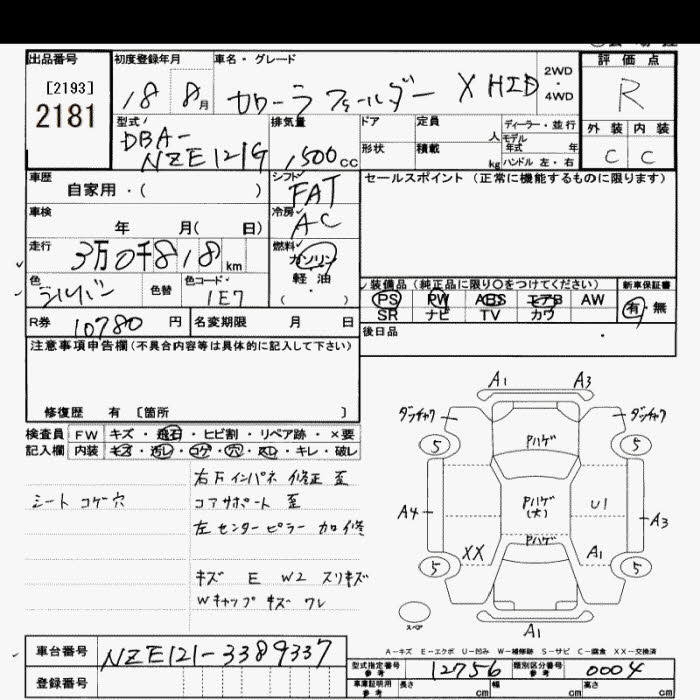 出品番号
[2193]
2181
初度登録年月
18 8月
車名・グレード
カローラフィールダー X HID
2WD
・
4WD
評価点
R
外装 内装
C C
型式
DBA-
NZE121G
排気量
1500cc
ドア 定員 人
形状 積載 kg
ディーラー・並行
モデル
年式 年
ハンドル 左・右
車歴
自家用・( )
シフト
FAT
セールスポイント (正常に機能するものに限ります)
車検
年 月( 日)
冷房
AC
走行
3万0千818km
燃料
ガソリン
・
軽油
・
( )
色
シルバー
色替
色コード
1E7
装備品 (純正品に限り○をつけてください)
PS PW ABS エアB AW
SR ナビ TV カワ
新車保証書
有・無
R券 10780円
名変期限 月 日
後日品
注意事項申告欄(不具合内容等は具体的に記入して下さい)
修復歴 有 [箇所 ]
検査員
記入欄
FW キズ・飛石・ヒビ割・リペア跡・×要
内装 キズ・汚レ・コゲ・穴・スレ・キレ・破レ
シート コゲ穴
右下インパネ 修正 歪
コアサポート 歪
左センターピラー カロ修
キズ E W2 スリキズ
Wキャップ キズ ワレ
A1 A3
ダッチャク ダッチャク
5 5
Pハゲ
Pハゲ
(大)
U1
A4 A3
Pハゲ
XX A1
5 5
スペア
A1
A-キズ E-エクボ U-凹み W-補修跡 S-サビ C-腐食 XX-交換済
車台番号 NZE121-3389337
登録番号
型式指定番号
参考
12756
類別区分番号
参考
0004
車庫証明用
参考
長さ cm 幅 cm 高さ cm